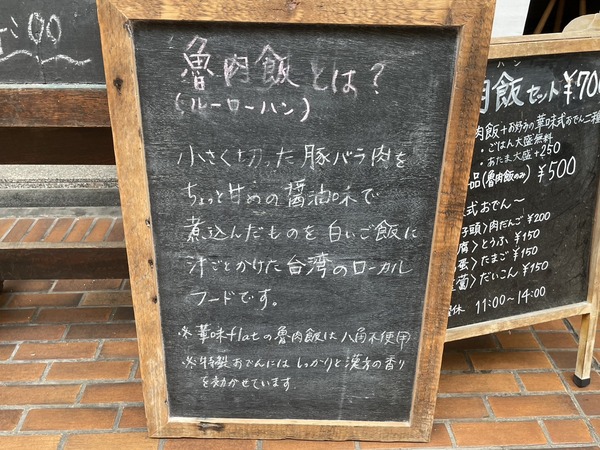 00
魯肉飯とは？
(ルーローハン)
小さく切った豚バラ肉を
ちょっと甘めの醤油味で
煮込んだものを白いご飯に
汁ごとかけた台湾のローカル
フードです。
※華味flatの魯肉飯は八角不使用
※特製おでんにはしっかりと漢方の香り
を効かせています。
ハン
肉飯セット¥700
肉飯+お好みの華味式おでん二種
・ごはん大盛無料
・あたま大盛+250
品(魯肉飯のみ)¥500
式おでん〜
子頭>肉だんご¥200
腐>とうふ¥150
蛋>たまご¥150
>だいこん¥150
休 11:00〜14:00